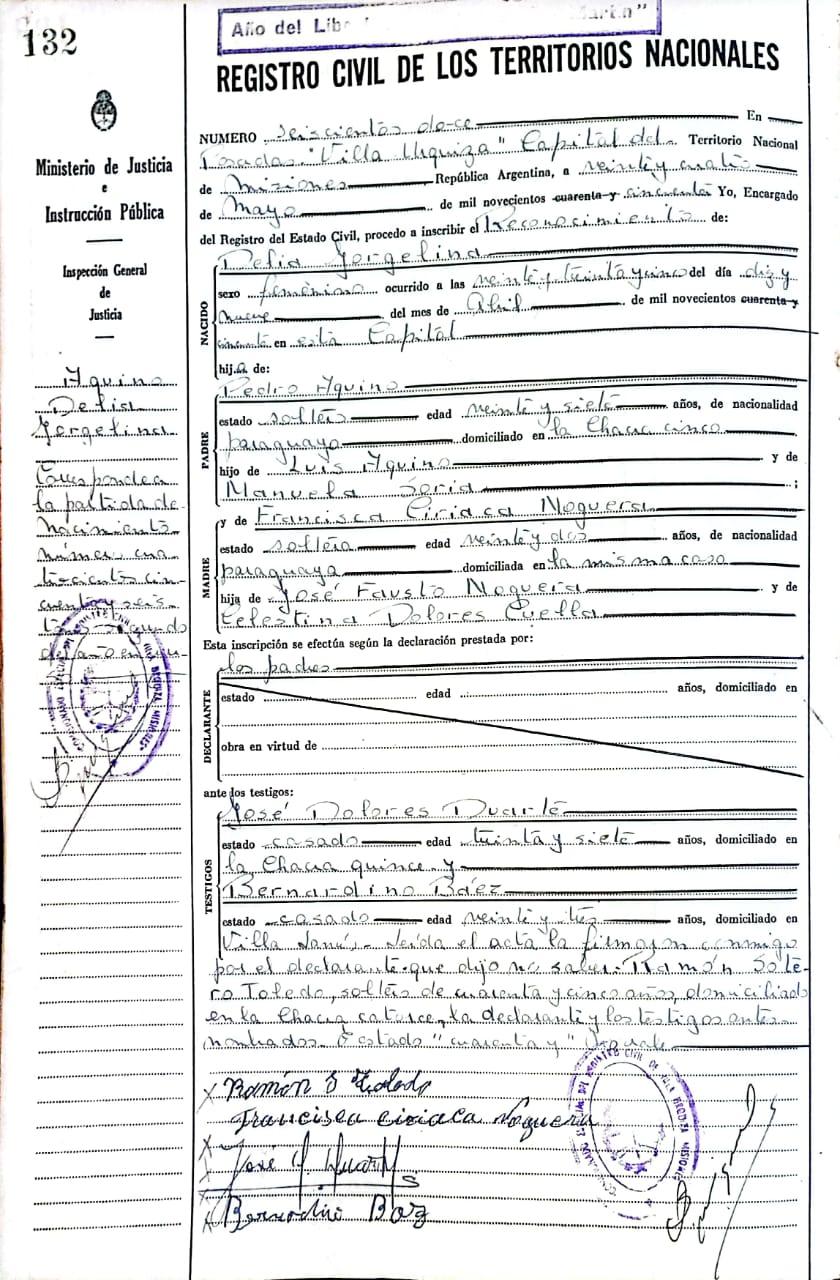 132
Año del Lib
Martín"
REGISTRO CIVIL DE LOS TERRITORIOS NACIONALES
Ministerio de Justicia
e
Instrucción Pública
Inspección General
de
Justicia
Aquino
Delia
Jorgelina
Corresponde a
la partida de
Nacimiento
número cua-
trocientos cin-
cuenta y seis
tomo segundo
del año en cur-
NUMERO seiscientos doce En
Posadas "Villa Urquiza" Capital del Territorio Nacional
de Misiones República Argentina, a veinte y cuatro
de Mayo de mil novecientos cuarenta y cincuenta Yo, Encargado
del Registro del Estado Civil, procedo a inscribir el Reconocimiento de:
NACIDO
Delia Jorgelina
sexo femenino ocurrido a las veinte y treinta y cinco del día diez y
nueve del mes de Abril de mil novecientos cuarenta y
cincuenta en esta Capital
hija de:
PADRE
Pedro Aquino
estado soltero edad veinte y siete años, de nacionalidad
paraguaya domiciliado en la Chacra cinco
hijo de Luis Aquino y de
Manuela Soria ;
MADRE
y de Francisca Ciriaca Noguera
estado soltera edad veinte y dos años, de nacionalidad
paraguaya domiciliada en la misma casa
hija de José Fausto Noguera y de
Celestina Dolores Cuella
Esta inscripción se efectúa según la declaración prestada por:
DECLARANTE
los padres
estado edad años, domiciliado en
obra en virtud de
ante los testigos:
TESTIGOS
José Dolores Duarte
estado casado edad treinta y siete años, domiciliado en
la Chacra quince y
Bernardino Báez
estado casado edad veinte y tres años, domiciliado en
Villa Lanús.- Leída el acta la firmaron conmigo
por el declarante que dijo no saber Ramón Sote-
ro Toledo, soltero de cuarenta y cinco años, domiciliado
en la Chacra catorce, la declarante y los testigos antes
nombrados. Testado "cuarenta y" No vale
Ramón S Toledo
Francisca ciriaca Noguera
José D Duarte
Bernardino Baez